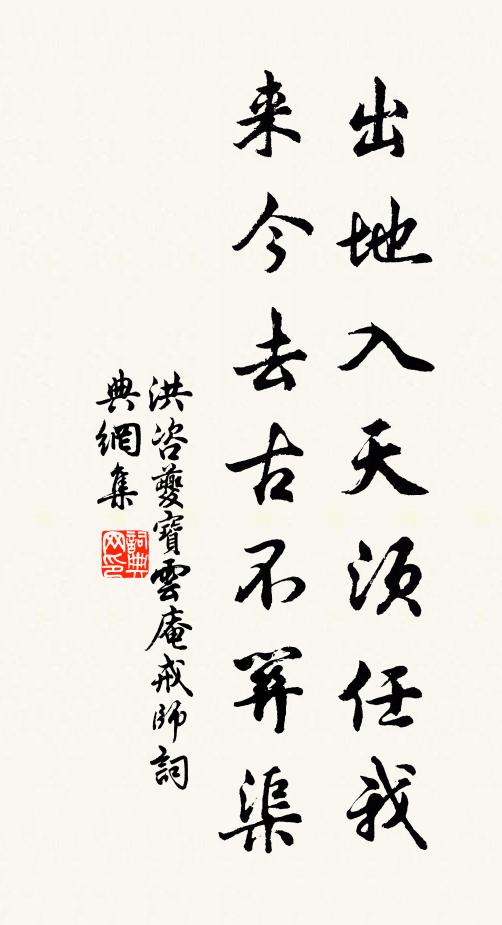 出地入天須任我
来今去古不関渠
洪咨夔寶雲庵戒師詞
典網集
詞典网印